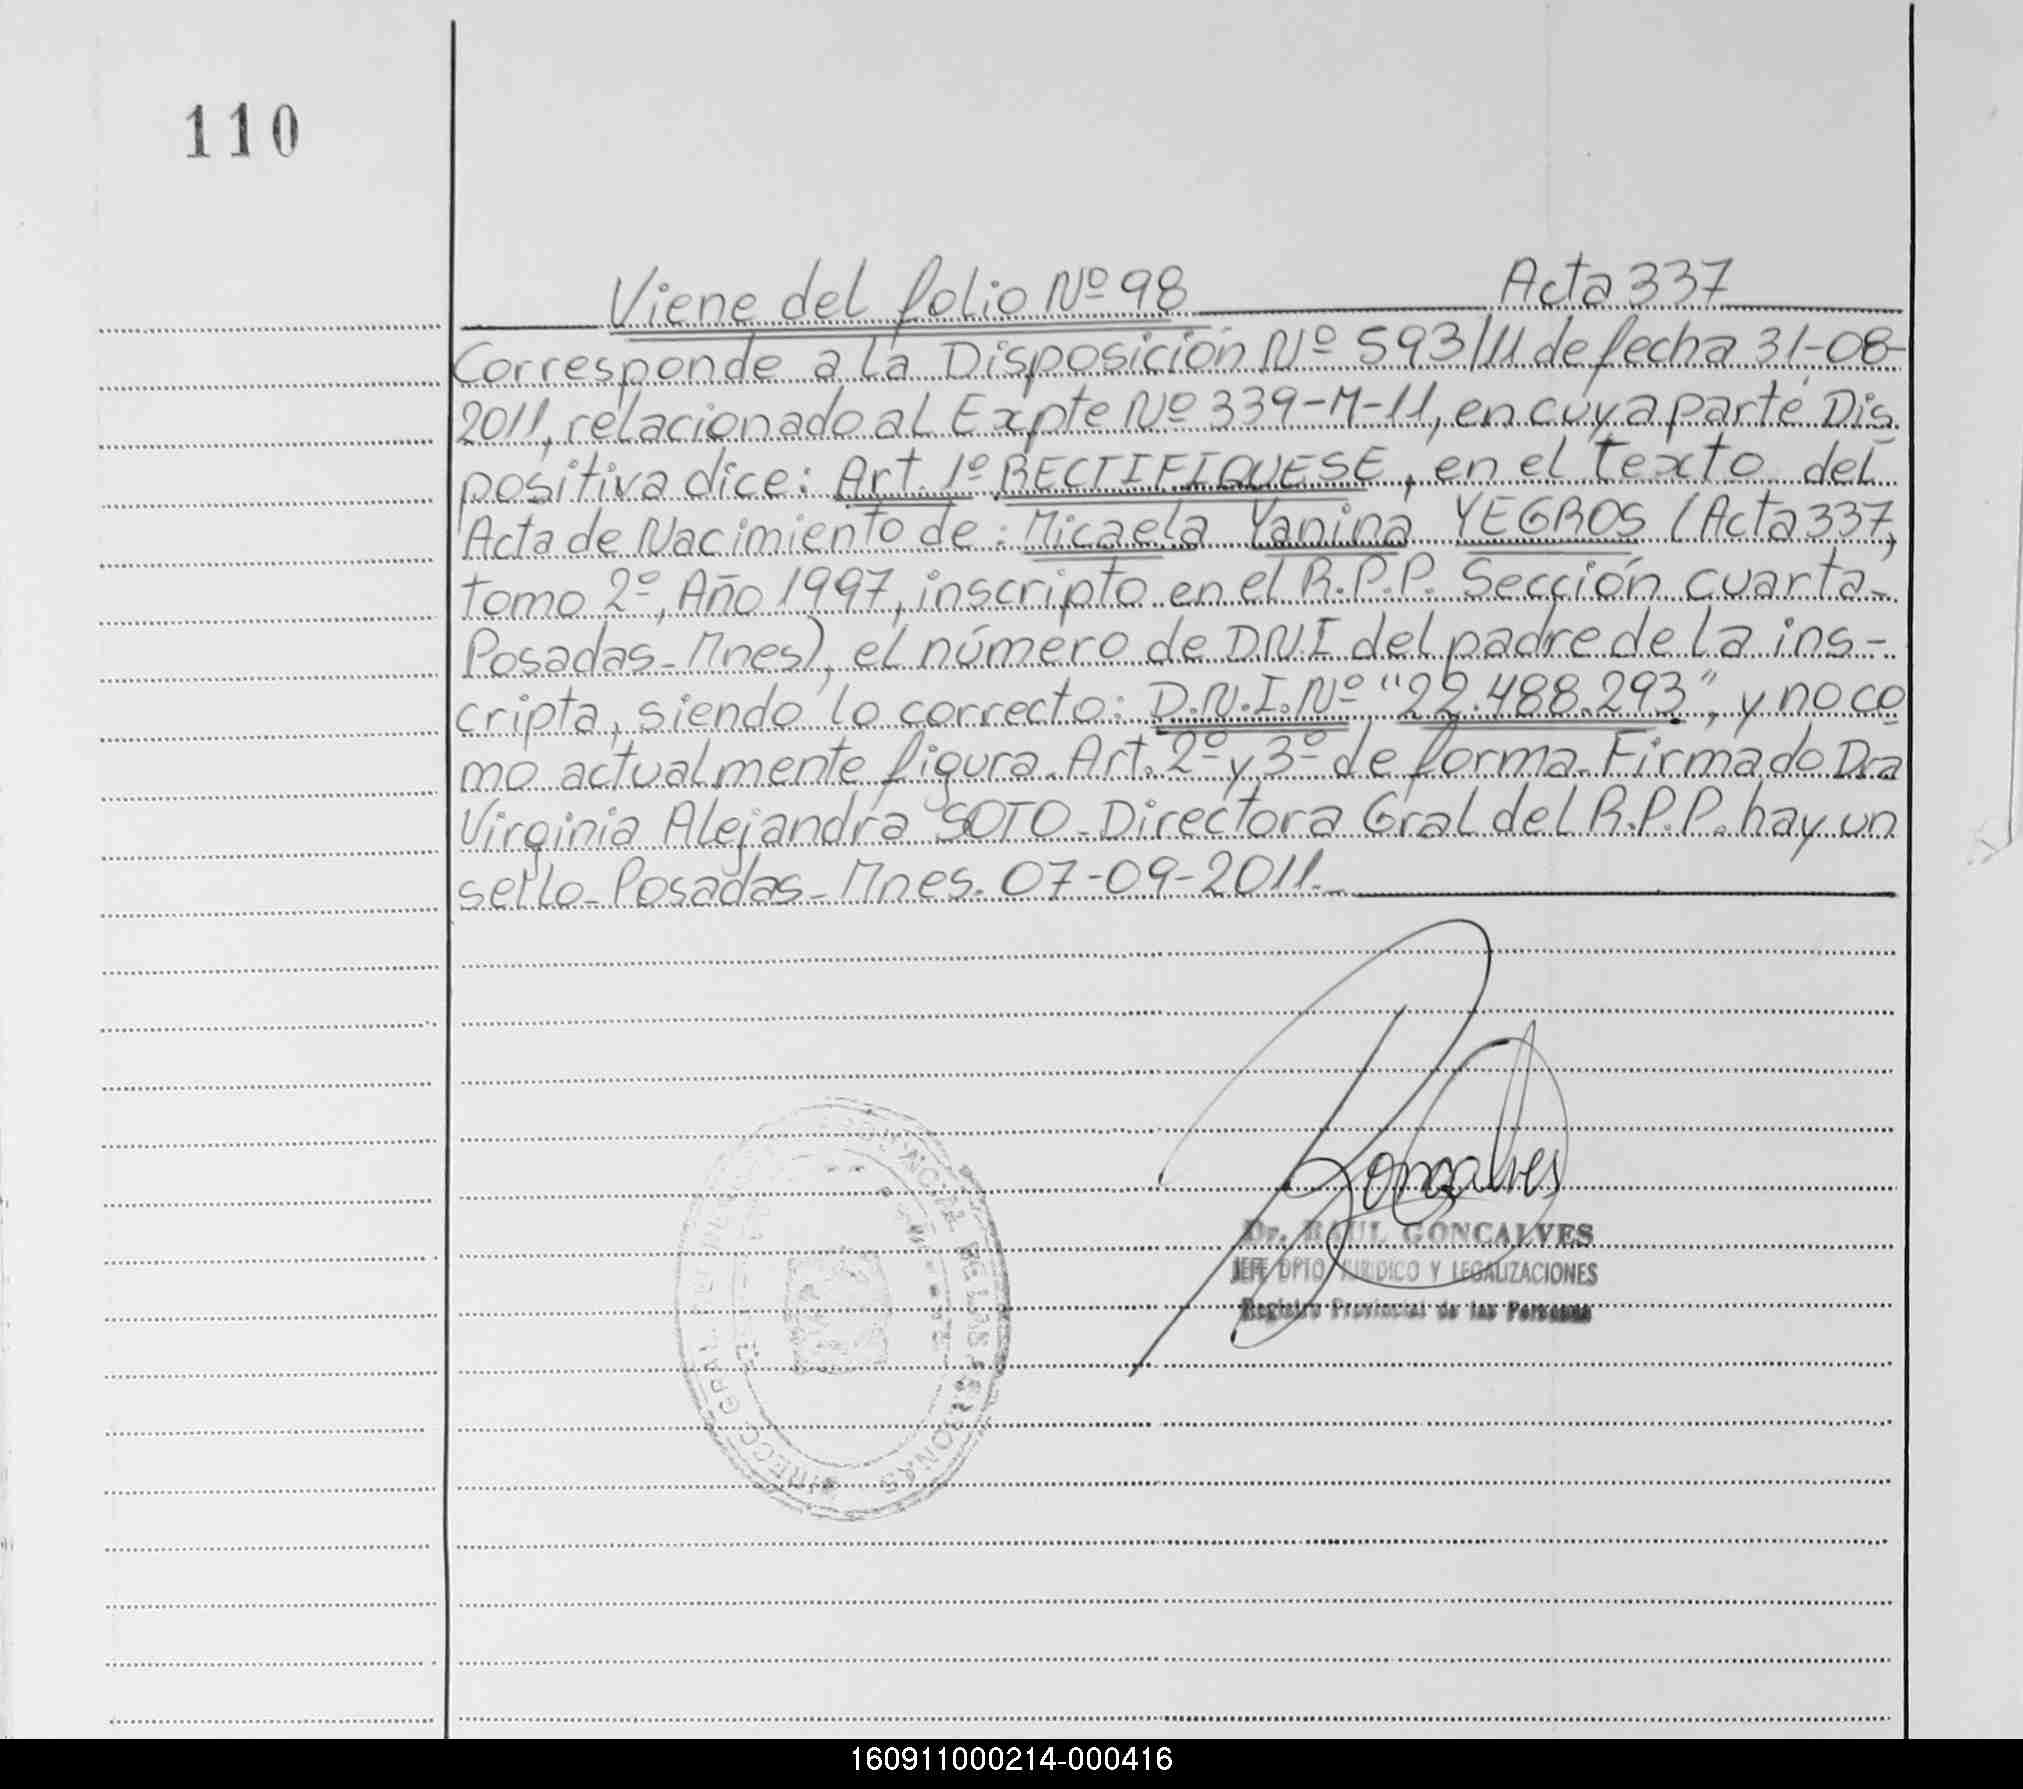 110
Viene del folio Nº 98 Acta 337
Corresponde a la Disposición Nº 593/11 de fecha 31-08-
2011, relacionado al Expte Nº 339-M-11, en cuya parte Dis
positiva dice: Art. 1º RECTIFIQUESE, en el texto del
Acta de Nacimiento de: Micaela Yanina YEGROS (Acta 337,
tomo 2º, Año 1997, inscripto en el R.P.P. Sección cuarta-
Posadas-Mnes), el número de DNI del padre de la ins-
cripta, siendo lo correcto: D.N.I. Nº "22.488.293", y no co
mo actualmente figura. Art. 2º y 3º de forma. Firmado Dra
Virginia Alejandra SOTO-Directora Gral del R.P.P. hay un
sello-Posadas-Mnes. 07-09-2011.-
Goncalves
Dr. RAUL GONCALVES
JEFE DPTO JURIDICO Y LEGALIZACIONES
Registro Provincial de las Personas
DIRECC. GRAL. DEL REGISTRO PROVINCIAL DE LAS PERSONAS
160911000214-000416